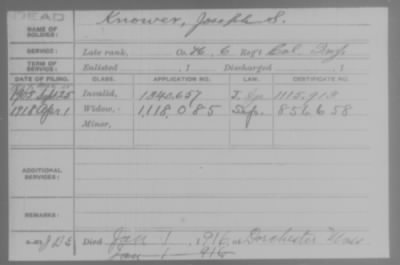 DEAD
NAME OF SOLDIER: Knower, Joseph S.
SERVICE: Late rank, Co. H, 6 Reg't Cal. Inf.
TERM OF SERVICE: Enlisted , 1 Discharged , 1
DATE OF FILING. CLASS. APPLICATION NO. LAW. CERTIFICATE NO.
25 Invalid, 1340,657
1918 Apr 1 Widow, 1,118,085 856658
Minor,
ADDITIONAL SERVICES:
REMARKS:
Died Jan 1, 1916, at Dorchester Mass
Jan 1 — 916